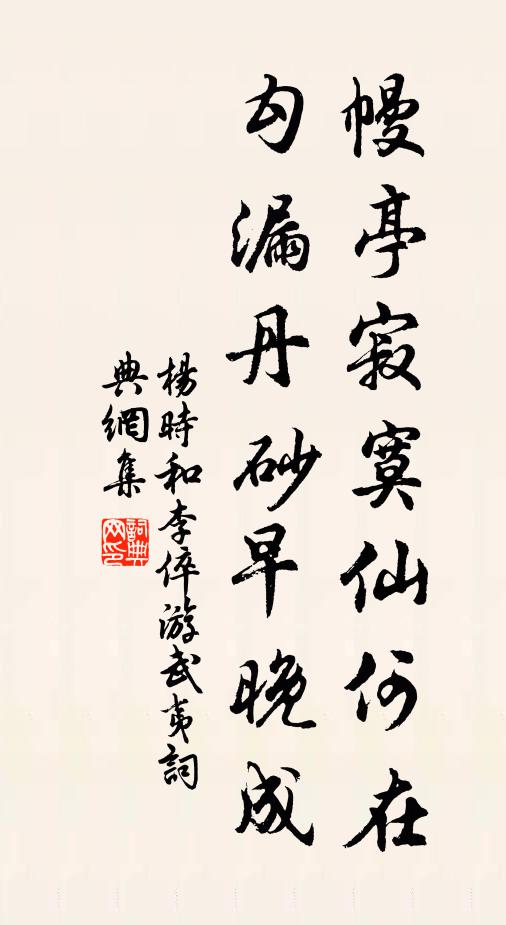 幔亭寂寞仙何在
勾漏丹砂早晚成
楊時和李倅游武夷詞
典網集
詞典网印